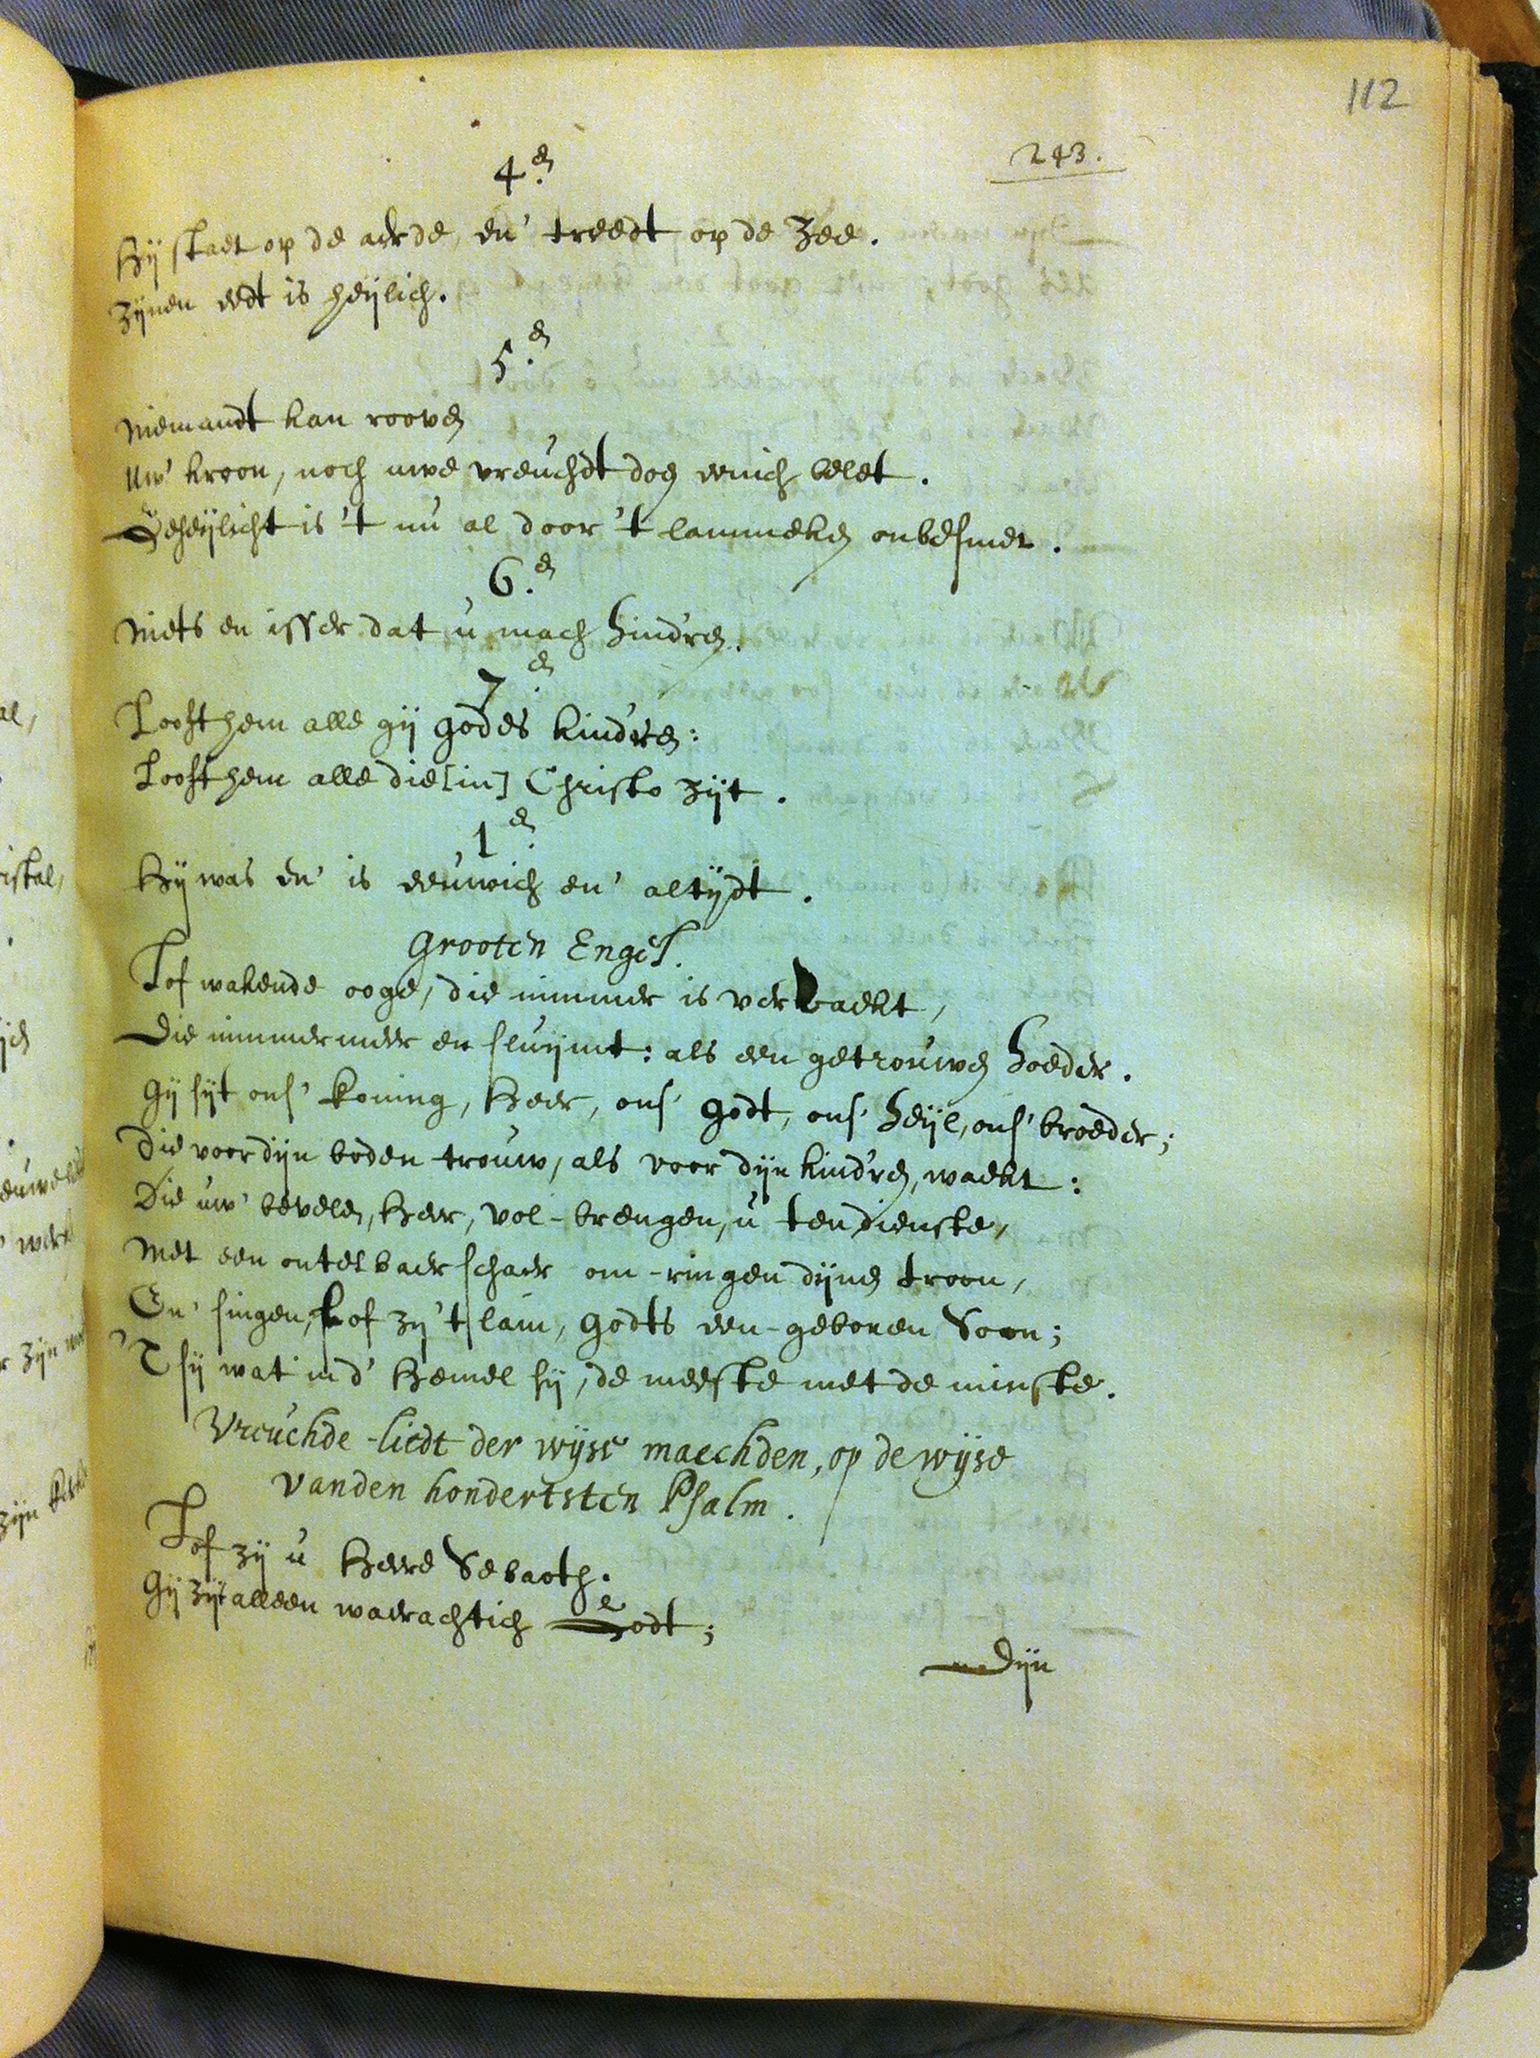 112
243.
4.e
Hij staet op de aerde, en' treedt op de Zee.
Zijnen eedt is heijlich.
5.e
Niemandt kan rooven
Uw' kroon, noch uwe vreuchdt doen eenich belet.
Geheijlicht is 't nu al door 't lammeken onbesmet.
6.e
Niets en isser dat u mach hind'ren.
7.e
Looft hem alle gij Godes kind'ren:
Looft hem alle die [in] Christo zijt.
1.e
Hij was en' is eeuwich en' altijdt.
Grooten Engel.
Lof wakende ooge, die nimmer is vervaekt,
Die nimmermeer en sluijmt: als een getrouwen hoeder.
Gij sijt ons' koning, Heer, ons' Godt, ons' heijl, ons' broeder;
Die voor dijn boden trouw, als voor dijn kind'ren, waekt:
Die uw' bevelen, Heer, vol-brengen, u ten dienste,
Met een ontelbaer schaer om-ringen dijnen troon,
En' singen, Lof zij 't lam, Godts een-geboren Soon;
'T sij wat in d' Hemel sij, de meeste met de minste.
Vreuchde-liedt der wijse maechden, op de wijse
vanden hondertsten Psalm.
Lof zij u Heere Sebaoth.
Gij zijt alleen waerachtich Godt;
Dijn